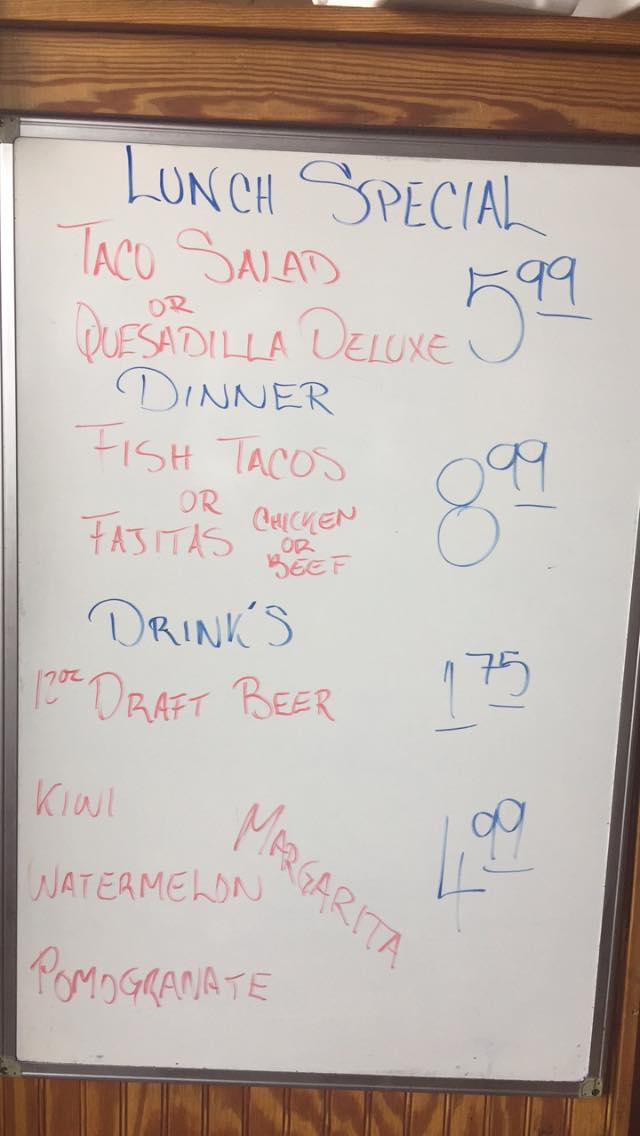 LUNCH SPECIAL
TACO SALAD
OR
QUESADILLA DELUXE 5 99
DINNER
FISH TACOS
OR
FAJITAS CHICKEN OR BEEF 8 99
DRINK'S
12oz DRAFT BEER 1 75
KIWI
WATERMELON MARGARITA 4 99
POMOGRANATE